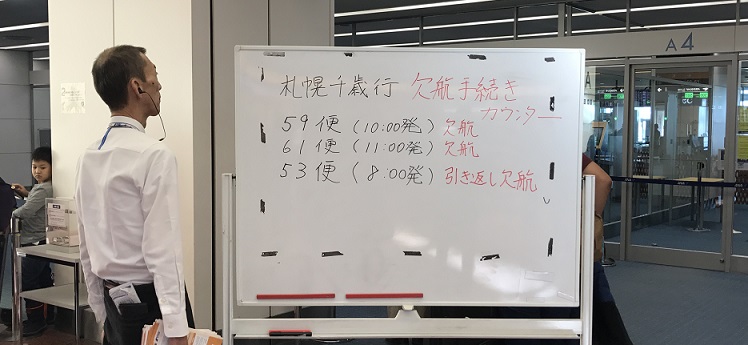 A4
札幌千歳行 欠航手続き
カウンター
59便(10:00発)欠航
61便(11:00発)欠航
53便(8:00発)引き返し欠航